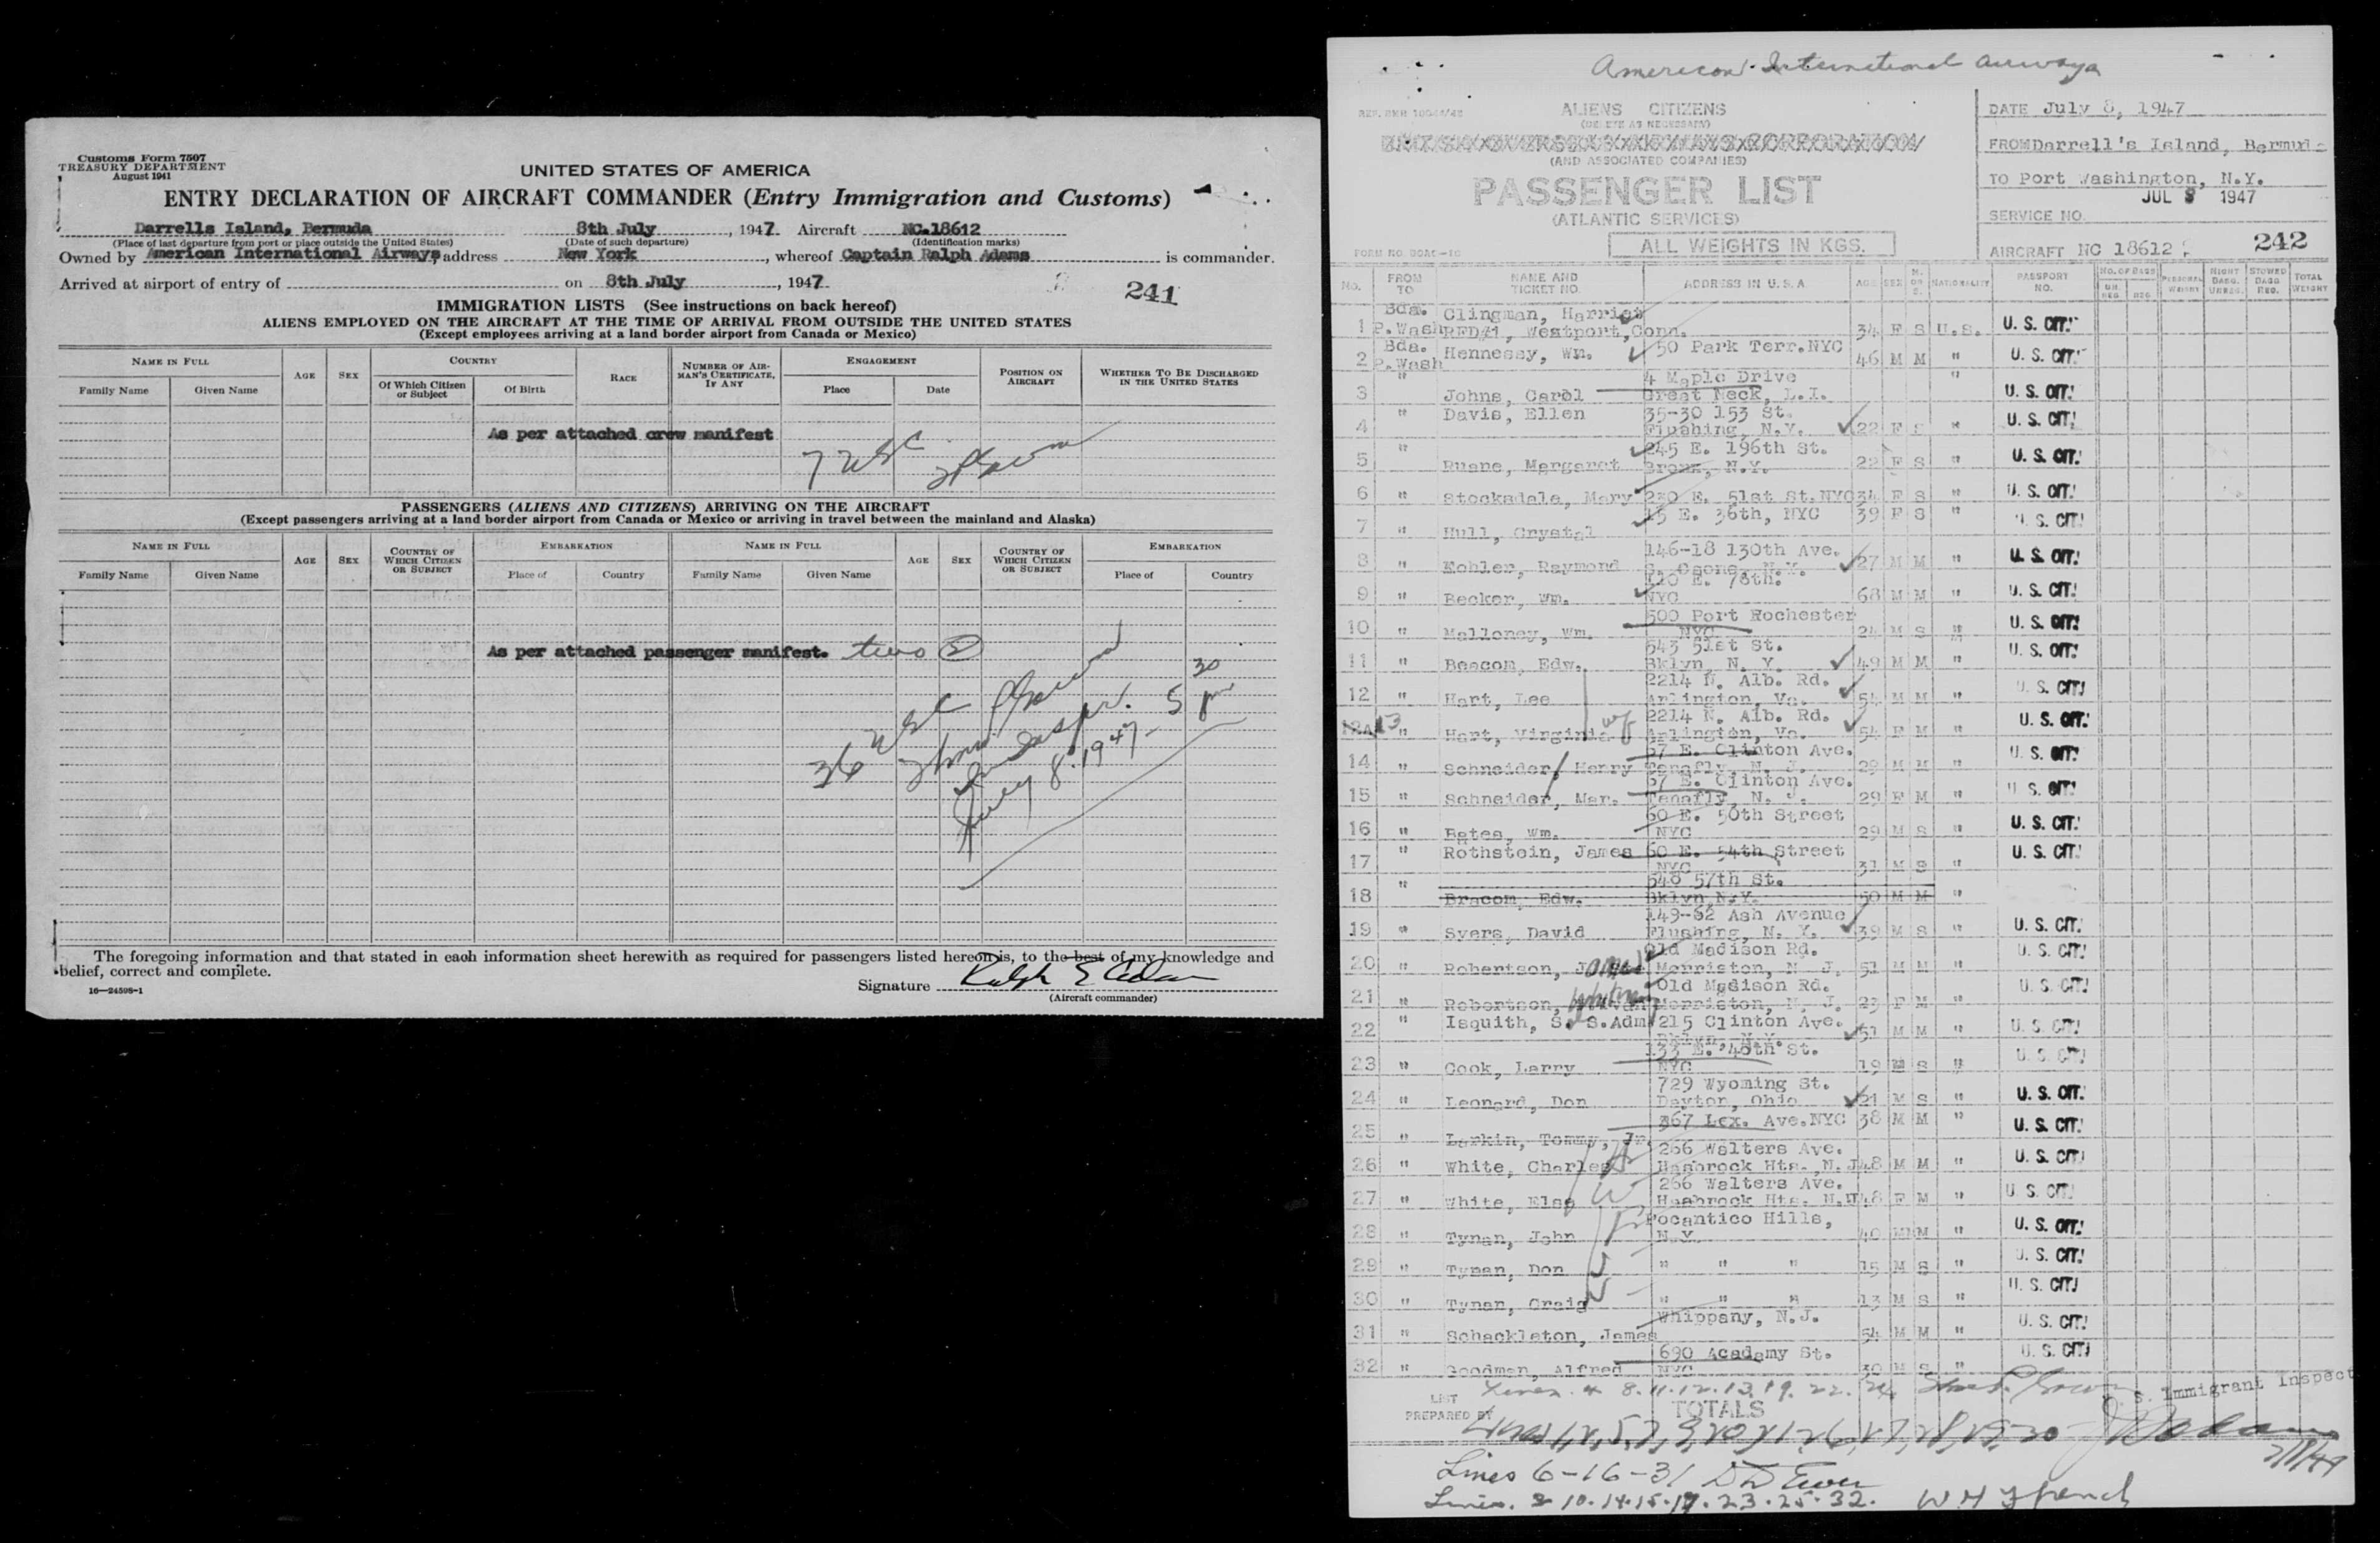 Customs Form 7507
TREASURY DEPARTMENT
August 1941
UNITED STATES OF AMERICA
ENTRY DECLARATION OF AIRCRAFT COMMANDER (Entry Immigration and Customs)
Darrells Island, Bermuda 8th July, 1947. Aircraft NC.18612
(Place of last departure from port or place outside the United States) (Date of such departure) (Identification marks)
Owned by American International Airways, address New York, whereof Captain Ralph Adams is commander.
Arrived at airport of entry of on 8th July, 1947
241
IMMIGRATION LISTS (See instructions on back hereof)
ALIENS EMPLOYED ON THE AIRCRAFT AT THE TIME OF ARRIVAL FROM OUTSIDE THE UNITED STATES
(Except employees arriving at a land border airport from Canada or Mexico)
NAME IN FULL AGE SEX COUNTRY RACE NUMBER OF AIRMAN'S CERTIFICATE, IF ANY ENGAGEMENT POSITION ON AIRCRAFT WHETHER TO BE DISCHARGED IN THE UNITED STATES
Family Name Given Name Of Which Citizen or Subject Of Birth Place Date
As per attached crew manifest
7 USC
PASSENGERS (ALIENS AND CITIZENS) ARRIVING ON THE AIRCRAFT
(Except passengers arriving at a land border airport from Canada or Mexico or arriving in travel between the mainland and Alaska)
NAME IN FULL AGE SEX COUNTRY OF WHICH CITIZEN OR SUBJECT EMBARKATION NAME IN FULL AGE SEX COUNTRY OF WHICH CITIZEN OR SUBJECT EMBARKATION
Family Name Given Name Place of Country Family Name Given Name Place of Country
As per attached passenger manifest. two 2
36 USC
5 30 pm
July 8. 1947
The foregoing information and that stated in each information sheet herewith as required for passengers listed hereon is, to the best of my knowledge and
belief, correct and complete.
16—24598-1
Signature Ralph E Adams
(Aircraft commander)
American International Airways
ALIENS CITIZENS
(DELETE AS NECESSARY)
(AND ASSOCIATED COMPANIES)
PASSENGER LIST
(ATLANTIC SERVICES)
ALL WEIGHTS IN KGS.
DATE July 8, 1947
FROM Darrell's Island, Bermuda
TO Port Washington, N.Y.
JUL 8 1947
SERVICE NO.
AIRCRAFT NC 18612
242
No. FROM TO NAME AND TICKET NO. ADDRESS IN U.S.A AGE SEX M. OR S. NATIONALITY PASSPORT NO. NO. OF BAGS PERSONAL WEIGHT STOWED BAGG REG. TOTAL WEIGHT
1 Bda. P.Wash Clingman, Harriet RFD#1, Westport, Conn. 34 F S U.S. U. S. CIT.
2 Bda. P.Wash Hennessy, Wm. 50 Park Terr. NYC 46 M M " U. S. CIT.
3 " Johns, Carol 4 Maple Drive Great Neck, L.I. " U. S. CIT.
4 " Davis, Ellen 35-30 153 St. Flushing, N.Y. 22 F S " U. S. CIT.
5 " Ruane, Margaret 245 E. 196th St. Bronx, N.Y. 22 F S " U. S. CIT.
6 " Stocksdale, Mary 230 E. 51st St. NYC 34 F S " U. S. CIT.
7 " Hull, Crystal 15 E. 36th, NYC 39 F S " U. S. CIT.
8 " Kohler, Raymond 146-18 130th Ave. S. Ozone, N.Y. 27 M M " U. S. CIT.
9 " Becker, Wm. E. 78th. NYC 68 M M " U. S. CIT.
10 " Malloney, Wm. 500 Port Rochester NYC 24 M S " U. S. CIT.
11 " Beacom, Edw. 543 51st St. Bklyn, N. Y. 49 M M " U. S. CIT.
12 " Hart, Lee 2214 N. Alb. Rd. Arlington, Va. 54 M M " U. S. CIT.
12A 13 " Hart, Virginia wf 2214 N. Alb. Rd. Arlington, Va. 54 F M " U. S. CIT.
14 " Schneider, Henry 57 E. Clinton Ave. Tenafly, N. J. 29 M M " U. S. CIT.
15 " Schneider, Mar. 57 E. Clinton Ave. Tenafly, N. J. 29 F M " U. S. CIT.
16 " Bates, Wm. 60 E. 50th Street NYC 29 M S " U. S. CIT.
17 " Rothstein, James 60 E. 54th Street NYC 31 M S " U. S. CIT.
18 " Bracom, Edw. 548 57th St. Bklyn, N.Y. 50 M M "
19 " Syers, David 149-62 Ash Avenue Flushing, N. Y. 39 M S " U. S. CIT.
20 " Robertson, James Old Madison Rd. Morriston, N. J. 51 M M " U. S. CIT.
21 " Robertson, Old Madison Rd. Morriston, N. J. 23 F M " U. S. CIT.
22 " Isquith, S. S.Adm 215 Clinton Ave. Bklyn, N.Y. 51 M M " U. S. CIT.
23 " Cook, Larry 133 E. 48th St. NYC 19 M S " U. S. CIT.
24 " Leonard, Don 729 Wyoming St. Dayton, Ohio 21 M S " U. S. CIT.
25 " Larkin, Tommy, Jr. 367 Lex. Ave. NYC 38 M M " U. S. CIT.
26 " White, Charles 266 Walters Ave. Hasbrock Hts., N.J 48 M M " U. S. CIT.
27 " White, Else W 266 Walters Ave. Hasbrock Hts. N.J 48 F M " U. S. CIT.
28 " Tynan, John Pocantico Hills, N.Y. 40 M M " U. S. CIT.
29 " Tynan, Don " " " 15 M S " U. S. CIT.
30 " Tynan, Craig " " " 13 M S " U. S. CIT.
31 " Schackleton, James Whippany, N.J. 54 M M " U. S. CIT.
32 " Goodman, Alfred 690 Academy St. NYC 30 M S " U. S. CIT.
Lines 4 8. 11. 12. 13. 19. 22. 24
LIST PREPARED BY
TOTALS
U. S. Immigrant Inspect
7/8/47
Lines 6-16-31
Lines. 3 10. 14. 15. 17. 23. 25. 32. W H French